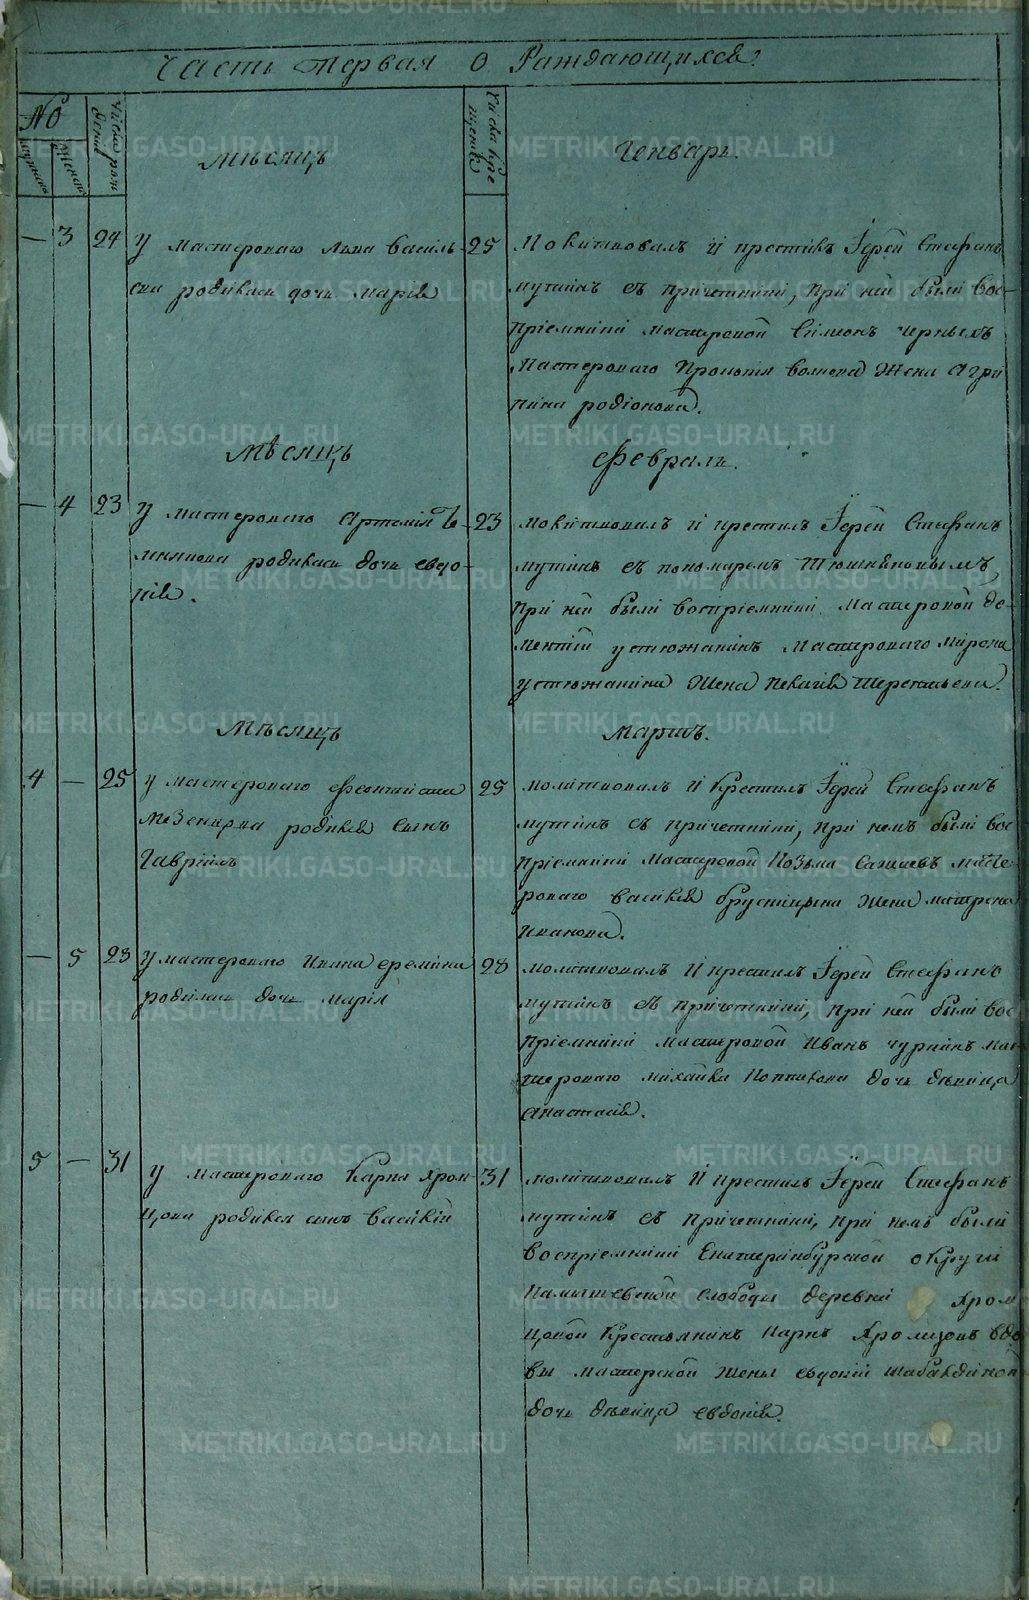 Часть первая о Раждающихся.
№
Мѣсяцъ
Генварь.
— 3 24 У мастероваго Льва Василь-
ева родилась дочь Марія
25 Молитвовалъ и крестилъ Іерей Стефанъ
Мутинъ съ причетники, при ней были вос-
пріемники мастеровой Симіонъ Черныхъ
Мастероваго жена Агри
пина родіонова.
Мѣсяцъ
Февраль.
— 4 23 У мастероваго Артемія
родилась дочь евдо-
кія.
23 молитвовалъ и крестилъ Іерей Стефанъ
мутинъ съ пономаремъ
при ней были воспріемники Мастеровой де-
ментій устюжанинъ Мастероваго Мирона
устюжанина жена Пелагія
Мѣсяцъ
Мартъ.
4 — 25 у мастероваго
родился сынъ
Гавріилъ
25 молитвовалъ и крестилъ Іерей Стефанъ
мутинъ съ причетники, при немъ были вос
пріемники Мастеровой Козьма масте-
роваго василія брусницына жена матрена
Иванова.
— 5 23 У мастероваго Ивана еремина
родилась дочь марія
28 молитвовалъ и крестилъ Іерей Стефанъ
мутинъ съ причетники, при ней были вос
пріемники мастеровой Иванъ чуркинъ мас
тероваго михайла дочь дѣвица
анастасія.
5 — 31 у мастероваго Карпа Хром-
цова родился сынъ Василій
31 молитвовалъ и крестилъ Іерей Стефанъ
мутинъ съ причетники, при немъ были
воспріемники Екатеринбургской округи
Камышевской слободы деревни Хром
цовой Крестьянинъ Карпъ Хромцовъ вдо
вы мастерской жены евдокіи
дочь дѣвица евдокія.